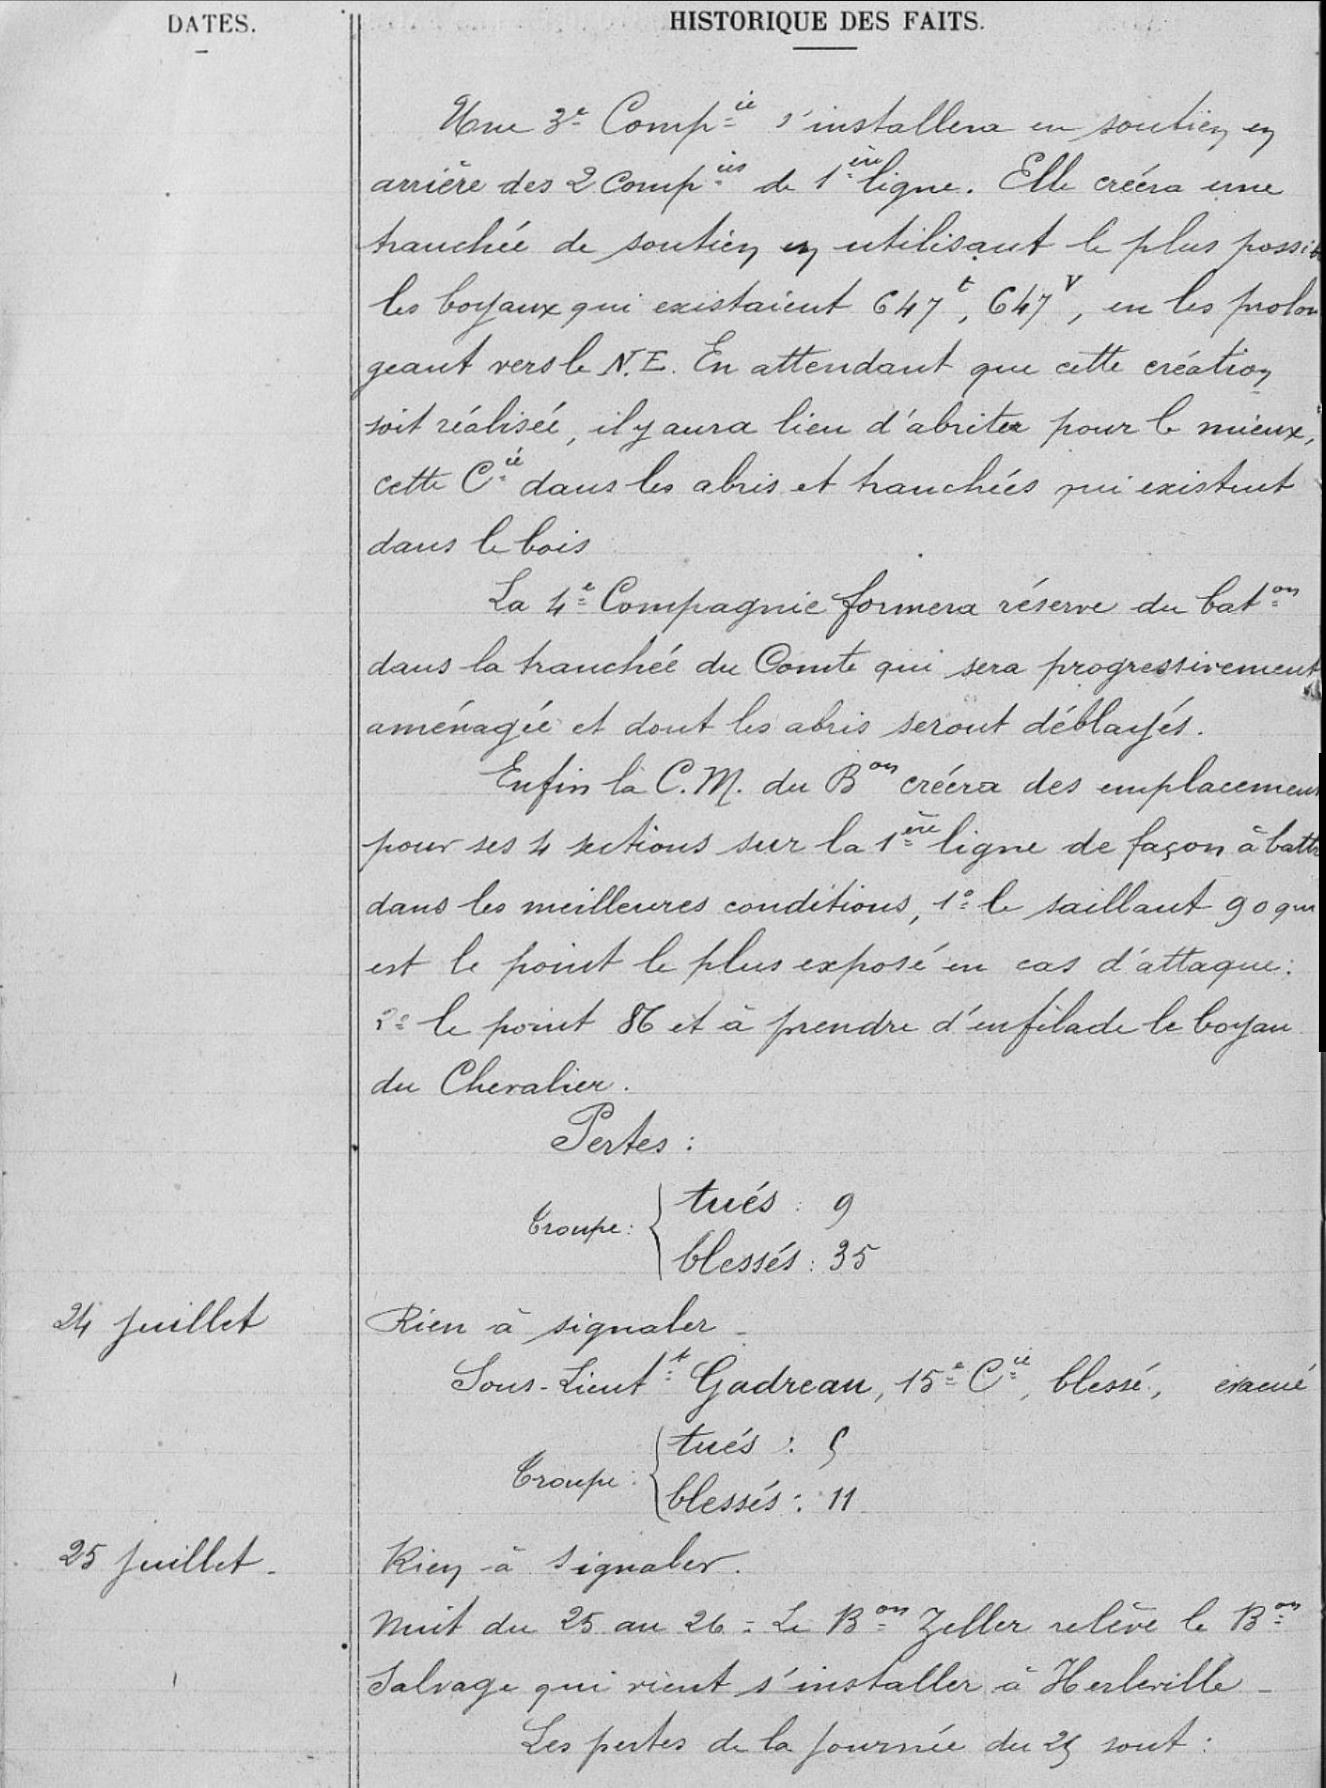 DATES.
HISTORIQUE DES FAITS.
Une 3e Compie s'installera en soutien en
arrière des 2 Compies de 1ère ligne. Elle créera une
tranchée de soutien en utilisant le plus possib
les boyaux qui existaient 647t, 647v, en les prolon
geant vers le N.E. En attendant que cette création
soit réalisée, il y aura lieu d'abriter pour le mieux,
cette Cie dans les abris et tranchées qui existent
dans le bois
La 4e Compagnie formera réserve du baton
dans la tranchée du Comte qui sera progressivement
aménagée et dont les abris seront déblayés.
Enfin la C.M. du Bon créera des emplacements
pour ses 4 sections sur la 1ère ligne de façon à battre
dans les meilleures conditions, 1° le saillant 90 qui
est le point le plus exposé en cas d'attaque:
2° le point 86 et à prendre d'enfilade le boyau
du Chevalier.
Pertes :
Troupe : { tués : 9
blessés : 35
24 juillet
Rien à signaler _
Sous-Lieutt Gadreau, 15e Cie, blessé, évacué
Troupe : { tués : 5
blessés : 11
25 juillet _
Rien à signaler.
Nuit du 25 au 26 = Le Bon Zeller relève le Bon
Salvage qui vient s'installer à Herleville _
Les pertes de la journée du 25 sont :